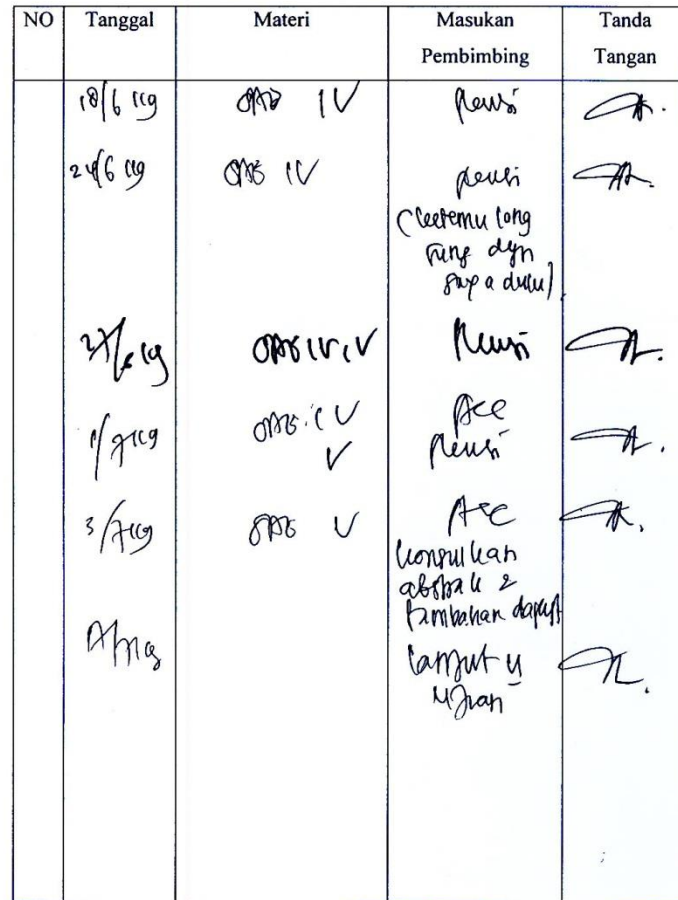 NO Tanggal Materi Masukan Pembimbing Tanda Tangan
18/6 19 BAB IV Revisi
24/6 19 BAB IV Revisi
(ketemu lang
sung dgn
saya dulu)
27/6 19 BAB IV, V Revisi
1/7 19 BAB IV ACC
V Revisi
3/7 19 BAB V ACC
konsulkan
abstrak &
tambahan
lanjut u
Ujian